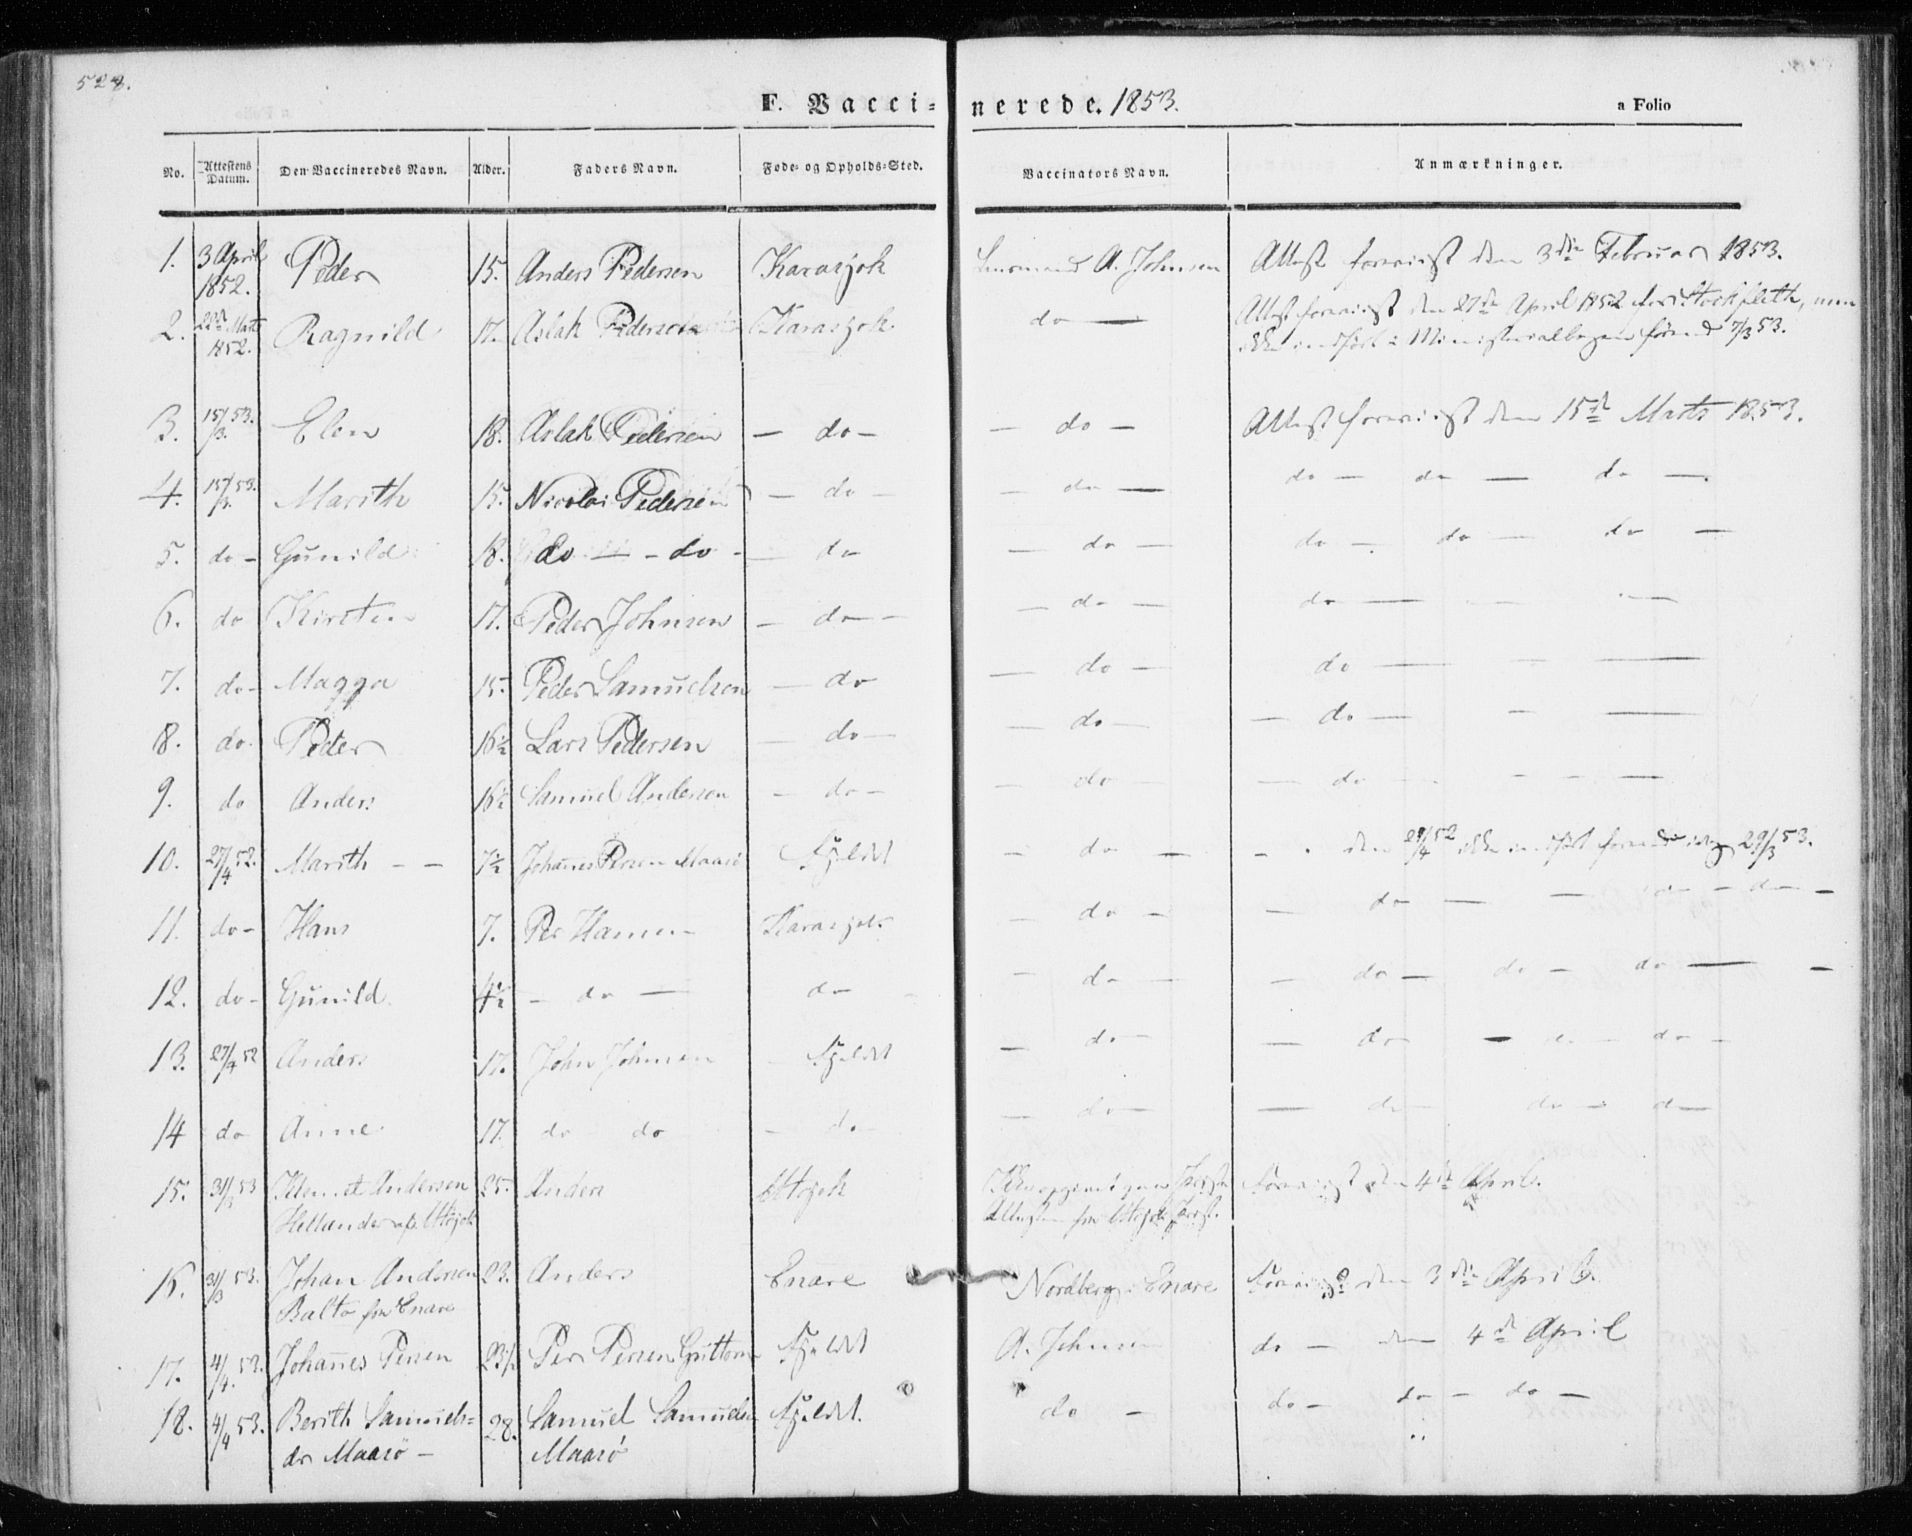 528.
F. Vaccinerede. 1853.
a Folio
No. Attestens Datum. Den Vaccineredes Navn. Alder. Faders Navn. Føde- og Opholds-Sted. Vaccinators Navn. Anmærkninger.
1. 3 April 1852. Peder 15. Anders Pedersen Karasjok Lensmand A. Johnsen Attest foreviist den 3die Februar 1853.
2. Marts 1852. Ragnild 17. Aslak Pedersen Karasjok do — Attest foreviist den 27de April 1852 for Stockfleth, men
ikke indført i Ministerialbogen førend 7/3 53.
3. 15/3 53. Elen 18. Aslak Pedersen — do — — do — Attest foreviist den 15de Marts 1853.
4. 15/3 53. Marith 15. Nicolai Pedersen — do — — do — do — do — do —
5. do — Gunild 18. do — do — do — do — do — do — do —
6. do Kirsten 17. Peder Johnsen — do — — do — do —
7. do — Magga 15. Peder Samuelsen — do — do — do —
8. do. Peder 16½ Lars Pedersen — do — — do — — do —
9. do Anders 16½ Samuel Andersen — do — — do — — do —
10. 27/4 52. Marith — — 7½ Johannes Persen Maasö Fjeldet — do — den 27/4 52 ikke indført førend idag 29/3 53.
11. do — Hans 7. Per Hansen Karasjok — do — — do — — do — do —
12. do — Gunild 4½ — do — do — do — — do — do — do —
13. 27/4 52 Anders 17. John Johnsen Fjeldet — do — — do — do — do —
14 do Anne 17. do do — do — — do — — do — do — do —
15. 31/3 53 Klemet Andersen 25. Anders Utsjok Foreviist den 4de April.
Hellander af Utsjok
16. 31/3 53. Johan Andersen 23. Anders Enare Nordberg i Enare Foreviist den 3die April.
Balto fra Enare
17. 4/4 53. Johannes Persen 23½ Per Persen Guttorm Fjeldet A. Johnsen do — den 4de April
18. 4/4 53. Berith Samuels= 28. Samuel Samuelsen Fjeldet. do — do — do — do —
dr Maasö — Maasö